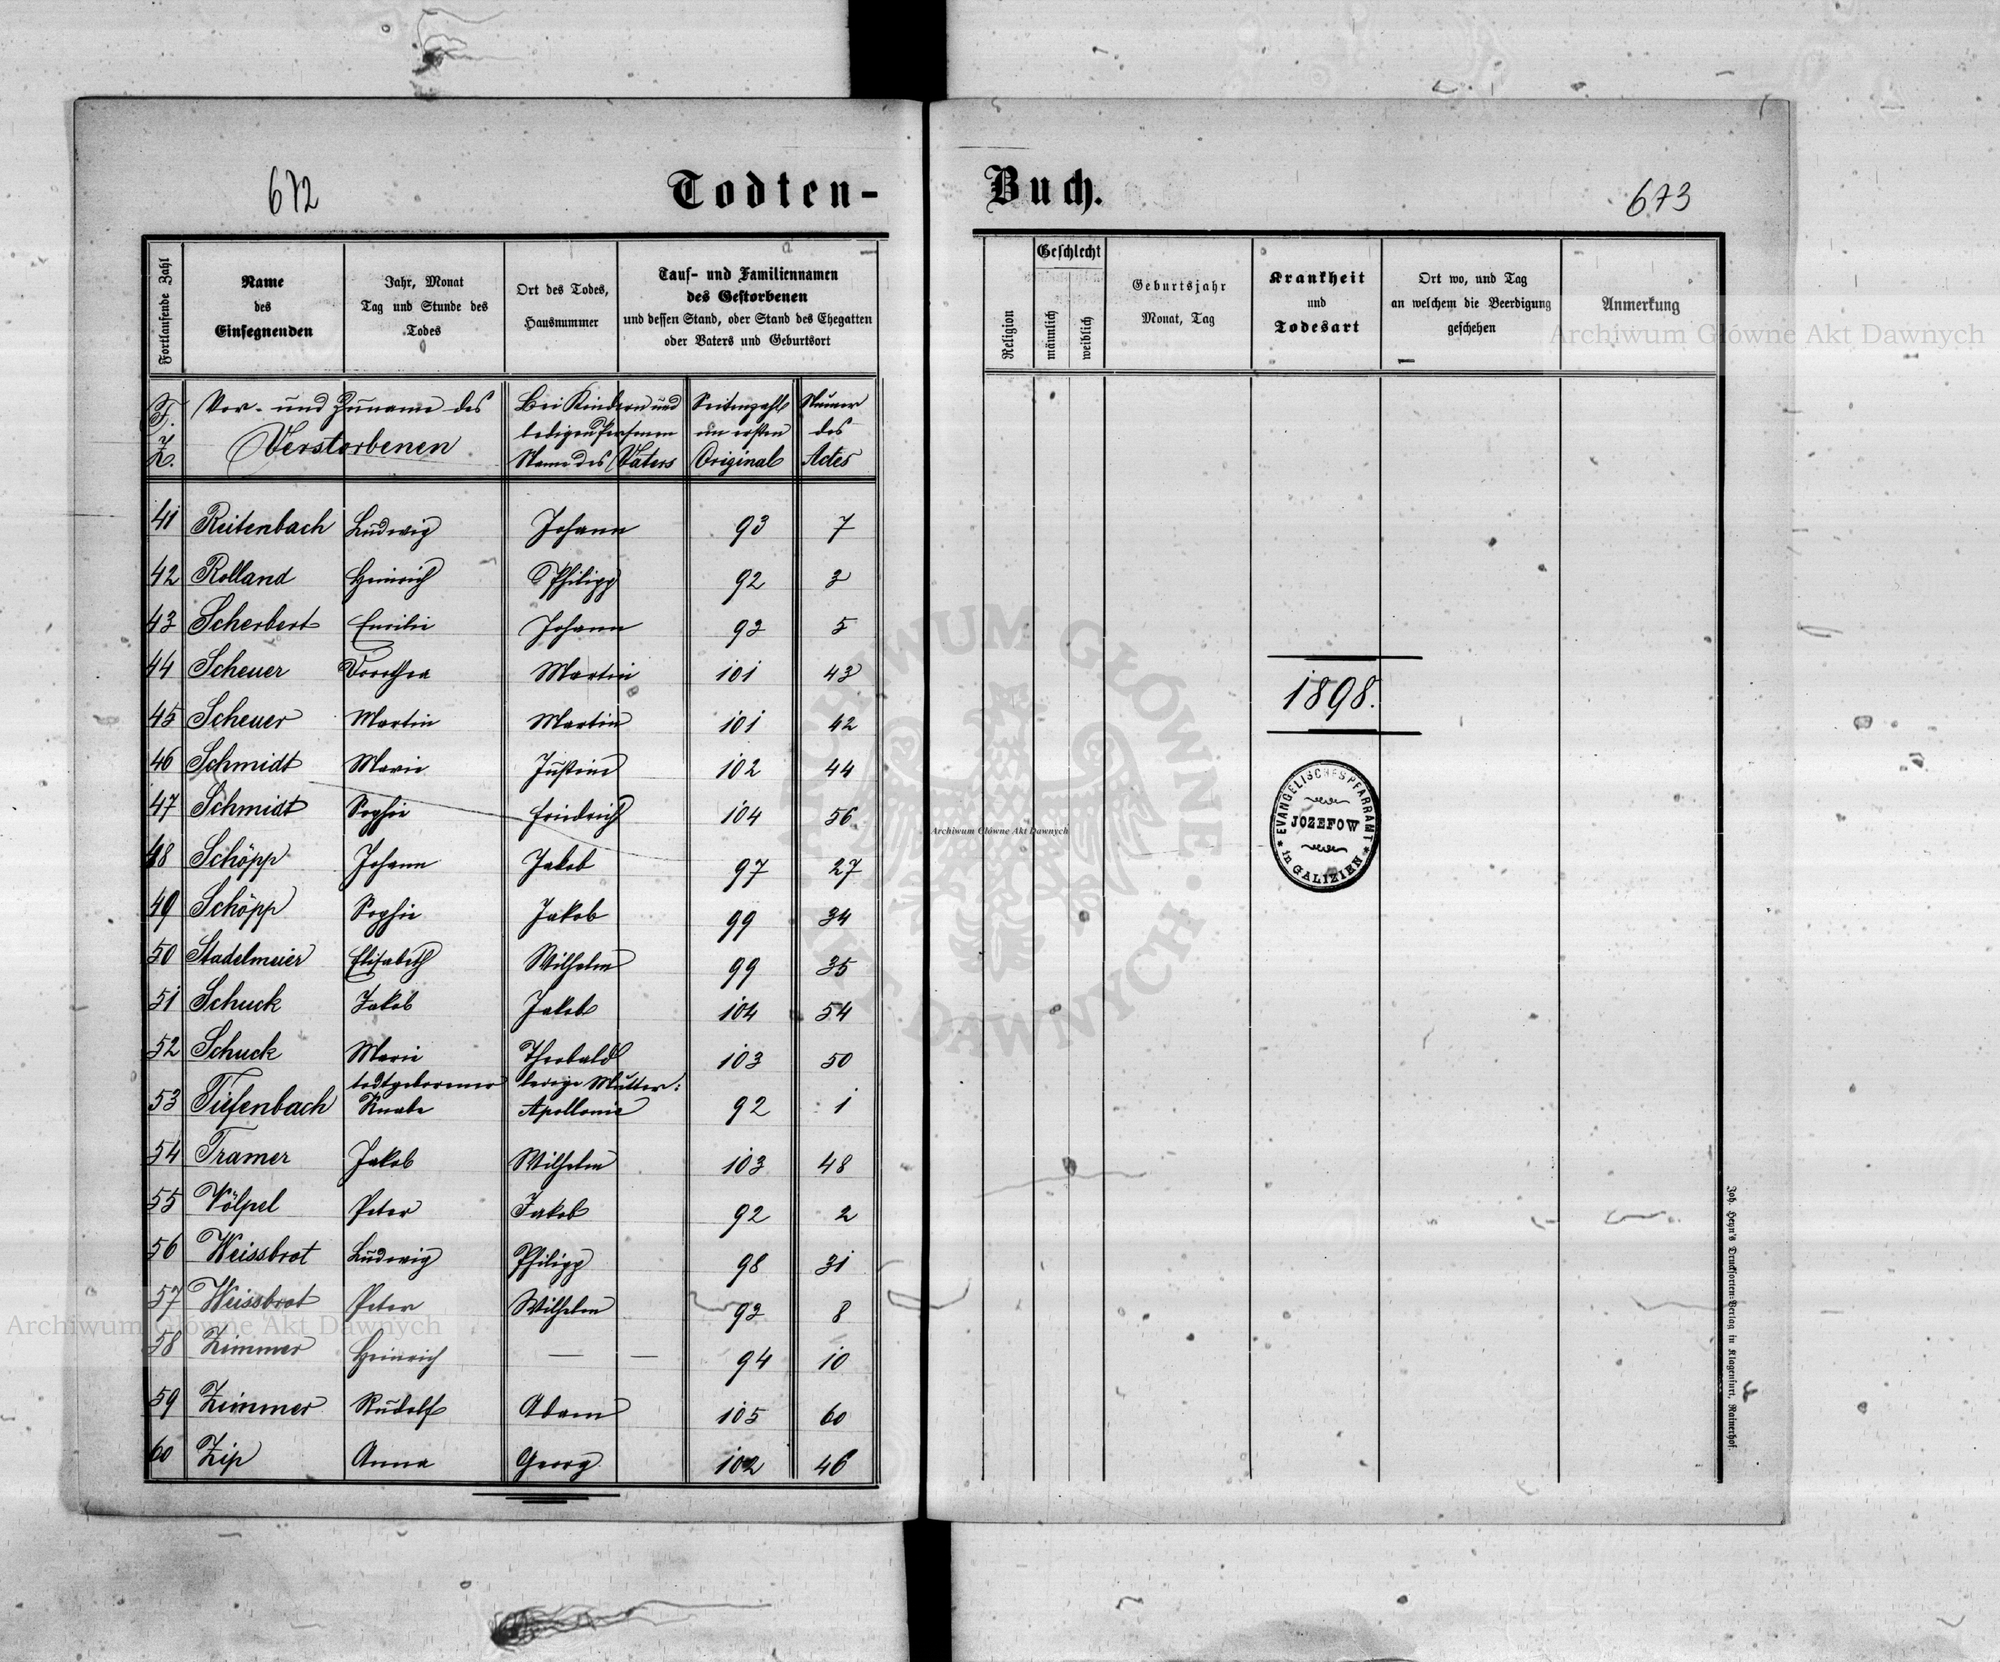 672
Todten-
Buch.
673
Fortlaufende Zahl
Name
des
Einsegnenden
Jahr, Monat
Tag und Stunde des
Todes
Ort des Todes,
Hausnummer
Tauf- und Familiennamen
des Gestorbenen
und dessen Stand, oder Stand des Ehegatten
oder Vaters und Geburtsort
Religion
Geschlecht
männlich
weiblich
Geburtsjahr
Monat, Tag
Krankheit
und
Todesart
Ort wo, und Tag
an welchem die Beerdigung
geschehen
Anmerkung
F. Z. Vor- und Zuname des Verstorbenen
Bei Kindern und
ledigen Personen
Name des Vaters
Seitenzahl
im ersten
Original
Numer
des
Actes
41 Reitenbach Ludwig Johann 93 7
42 Rolland Heinrich Philipp 92 3
43 Scherbert Emilie Johann 93 5
44 Scheuer Dorothea Martin 101 43
45 Scheuer Martin Martin 101 42
46 Schmidt Marie Justine 102 44
47 Schmidt Sophie Friedrich 104 56
48 Schöpp Johann Jakob 97 27
49 Schöpp Sophie Jakob 99 34
50 Stadelmeier Elisabeth Wilhelm 99 35
51 Schuck Jakob Jakob 104 54
52 Schuck Marie Theobald 103 50
todtgeborener ledige Mutter:
53 Tiefenbach Knabe Apollonie 92 1
54 Tramer Jakob Wilhelm 103 48
55 Völpel Peter Jakob 92 2
56 Weissbrot Ludwig Philipp 98 31
57 Weissbrot Peter Wilhelm 93 8
58 Zimmer Heinrich — — 94 10
59 Zimmer Rudolf Adam 105 60
60 Zip Anna Georg 102 46
1898.
EVANGELISCHES PFARRAMT
JÓZEFOW
in GALIZIEN
Joh. Heyn's Drucksorten-Verlag in Klagenfurt, Rainerhof.
Archiwum Główne Akt Dawnych
Archiwum Główne Akt Dawnych
Archiwum Główne Akt Dawnych
ARCHIWUM GŁÓWNE AKT DAWNYCH